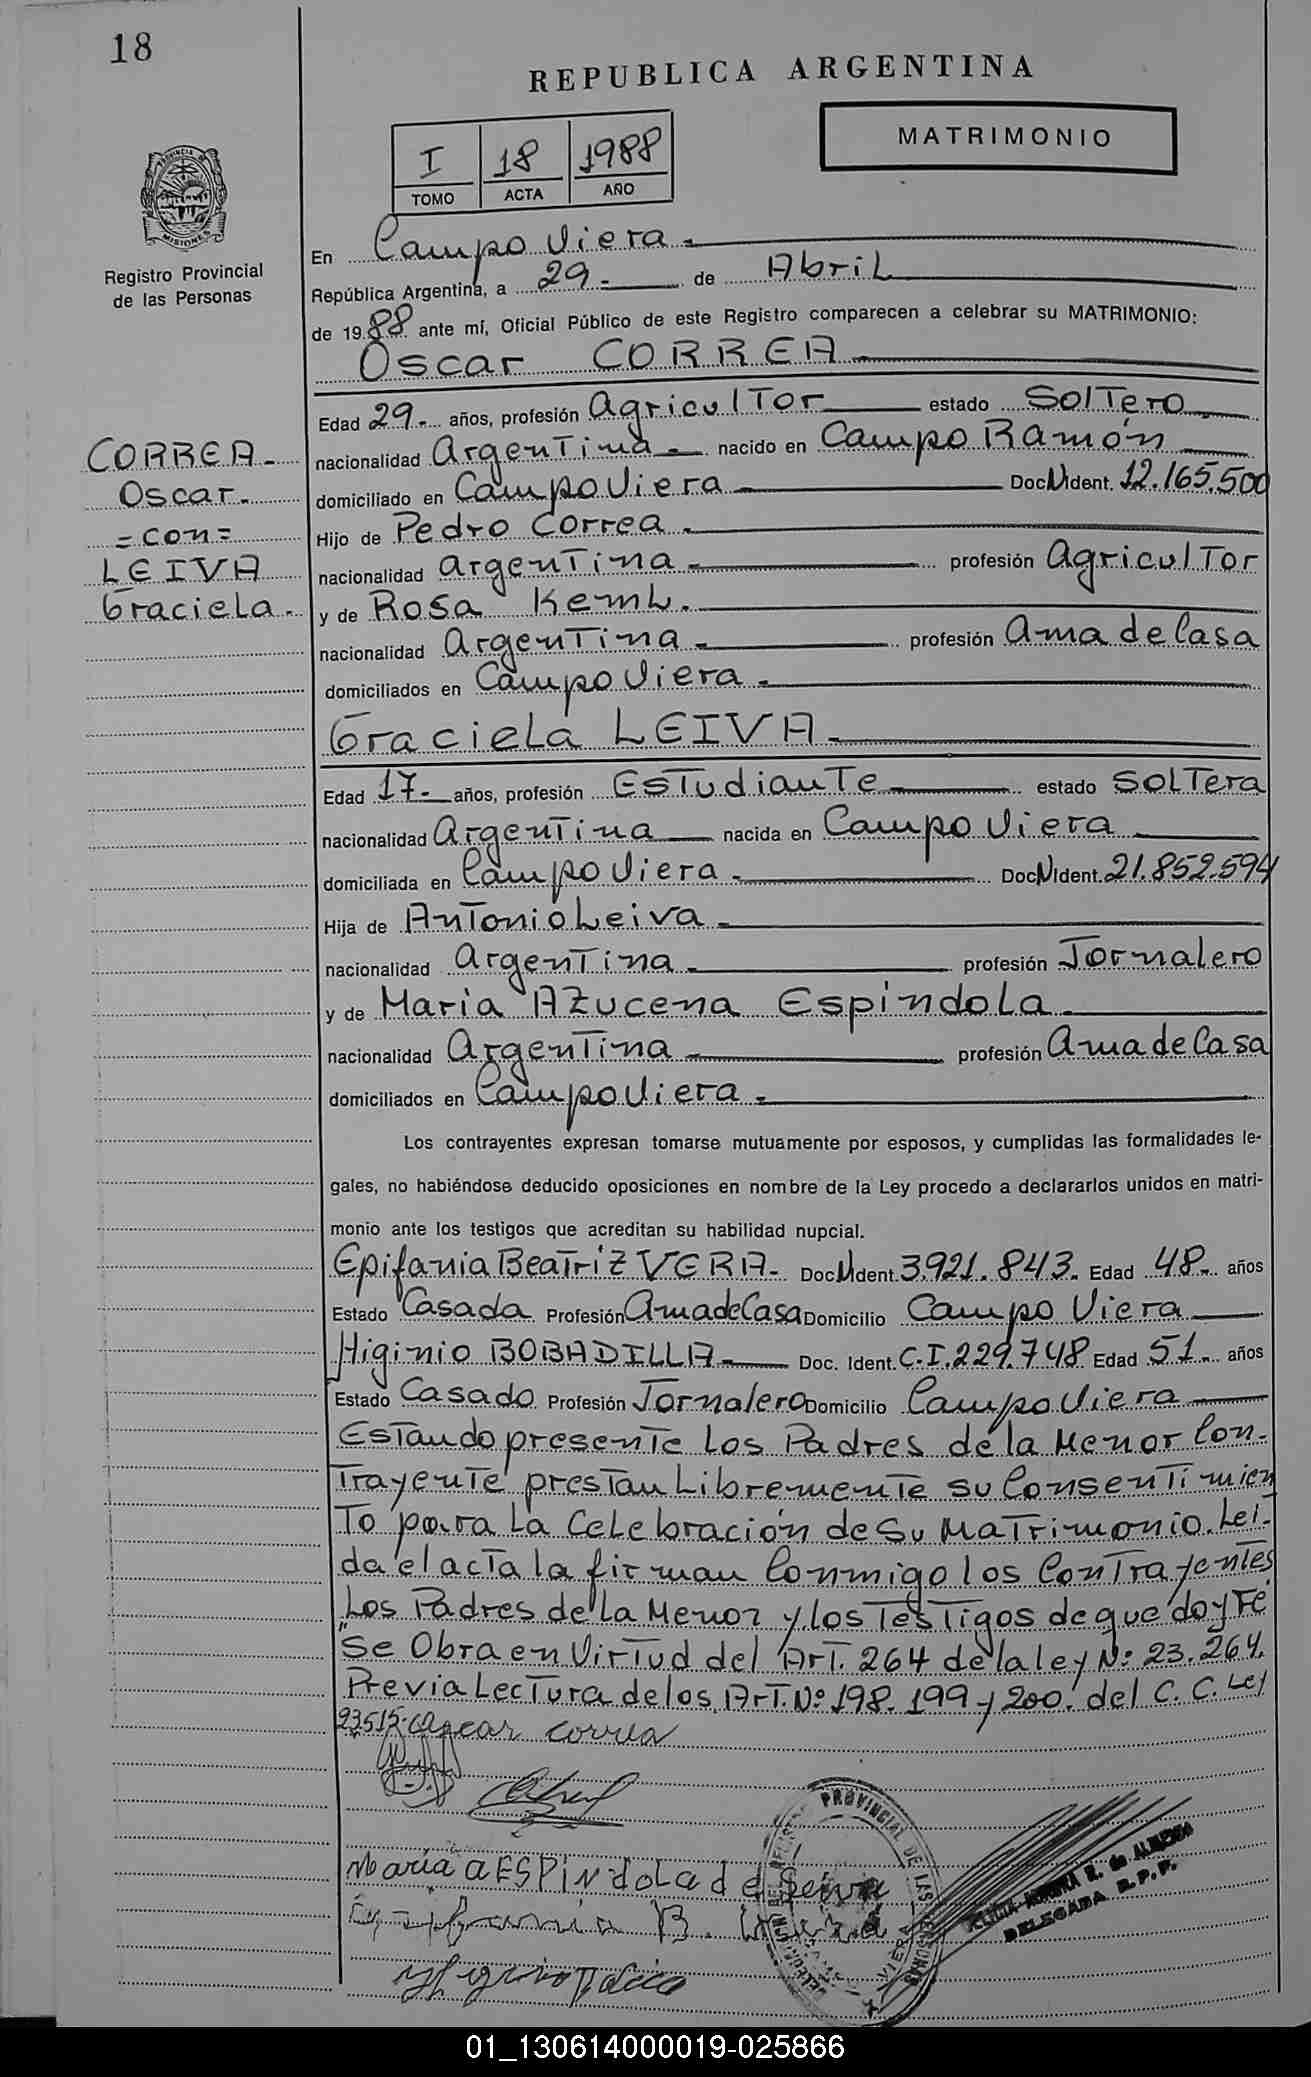 18
REPUBLICA ARGENTINA
MATRIMONIO
I 18 1988
TOMO ACTA AÑO
PROVINCIA DE
MISIONES
Registro Provincial
de las Personas
En Campo Viera.
República Argentina, a 29- de Abril
de 1988 ante mí, Oficial Público de este Registro comparecen a celebrar su MATRIMONIO:
Oscar CORREA
Edad 29- años, profesión Agricultor estado Soltero
CORREA- nacionalidad Argentina- nacido en Campo Ramón
Oscar- domiciliado en Campo Viera Doc N Ident. 12.165.500
=con= Hijo de Pedro Correa.
LEIVA nacionalidad argentina profesión Agricultor
Graciela. y de Rosa
nacionalidad Argentina profesión Ama de Casa
domiciliados en Campo Viera.
Graciela LEIVA
Edad 17- años, profesión Estudiante estado Soltera
nacionalidad Argentina nacida en Campo Viera
domiciliada en Campo Viera. Doc N Ident. 21.852.594
Hija de Antonio Leiva
nacionalidad Argentina profesión Jornalero
y de Maria Azucena Espindola
nacionalidad Argentina profesión Ama de Casa
domiciliados en Campo Viera.
Los contrayentes expresan tomarse mutuamente por esposos, y cumplidas las formalidades le-
gales, no habiéndose deducido oposiciones en nombre de la Ley procedo a declararlos unidos en matri-
monio ante los testigos que acreditan su habilidad nupcial.
Epifania Beatriz VERA- Doc N Ident. 3.921.843. Edad 48- años
Estado Casada Profesión Ama de Casa Domicilio Campo Viera
Higinio BOBADILLA Doc. Ident. C.I. 229.748 Edad 51- años
Estado Casado Profesión Jornalero Domicilio Campo Viera
Estando presente Los Padres de la Menor Con-
trayente prestan Libremente su Consentimien
to para La Celebración de Su Matrimonio. Lei-
da el acta la firman Conmigo los Contrayentes
Los Padres de La Menor y los Testigos de que doy Fé
"Se Obra en Virtud del Art. 264 de la ley Nº 23.264.
Previa Lectura de los Art. Nº 198. 199 y 200. del C. C. Ley
23515. Oscar Correa
Maria a ESPindola de Leiva
Epifania B.
PROVINCIAL DE LAS PERSONAS
VIERA
DELEGADA R.P.P.
01_130614000019-025866